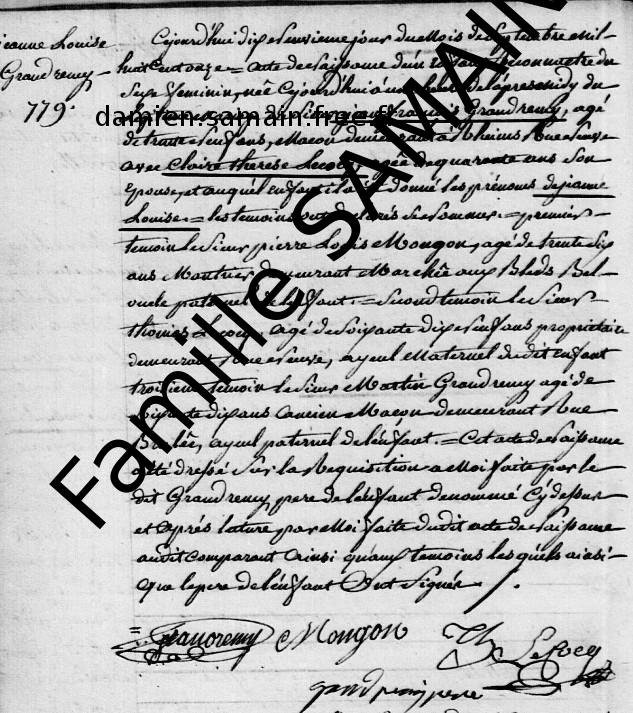 jeanne Louise
Grandremy
779.
Cejourd'hui dix neuvieme jour du Mois de Septembre mil
huit cent onze = acte de Naissance d'un Enfant reconnu etre du
Sexe feminin, née Cejourd'hui à une heure de l'apresmidy du
François Grandremy, agé
de trente Maçon demeurant à Rheims Rue Neuve
avec Claire therese Lecocq agée de quarante ans Son
Epouse, et auquel enfant il a été donné les prénoms de jeanne
Louise = les temoins ont declarés Se nommer = premier
temoin le Sieur pierre Louis Mongon, agé de trente Six
ans demeurant Marchée aux Bleds Bel
oncle paternel de l'enfant. = Second temoin le Sieur
thomas Lecocq, agé de Soixante dix Sept ans propriétaire
demeurant Rue Neuve, ayeul Maternel dudit enfant
troisieme temoin le Sieur Martin Grandremy agé de
Soixante dix ans ancien Maçon demeurant Rue
ayeul paternel de l'enfant. = Cet acte de Naissance
a été dressé Sur la Requisition a Moi faite par le
dit Grandremy pere de l'enfant denommé Cy dessus
et aprés lature par Moi faite dudit acte de Naissance
audit comparant ainsi qu'aux temoins lesquels ainsi
que le pere de l'enfant Ont Signés
Grandremy Mongon Th Lecocq
grandremy pere
damien.samain.free.fr
Famille SAMAIN